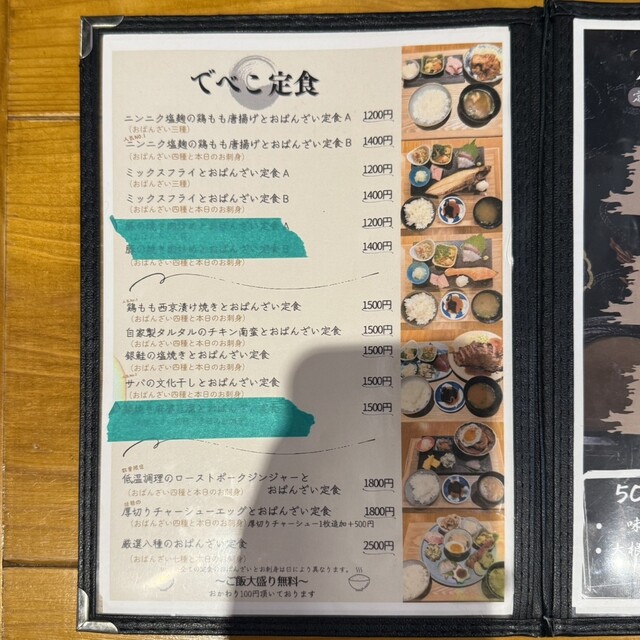 でべこ定食
ニンニク塩麹の鶏もも唐揚げとおばんざい定食A 1200円
(おばんざい三種)
人気NO.1
ニンニク塩麹の鶏もも唐揚げとおばんざい定食B 1400円
(おばんざい四種と本日のお刺身)
ミックスフライとおばんざい定食A 1200円
(おばんざい三種)
ミックスフライとおばんざい定食B 1400円
(おばんざい四種と本日のお刺身)
1200円
1400円
(おばんざい四種と本日のお刺身)
鶏もも西京漬け焼きとおばんざい定食 1500円
(おばんざい四種と本日のお刺身)
自家製タルタルのチキン南蛮とおばんざい定食 1500円
(おばんざい四種と本日のお刺身)
銀鮭の塩焼きとおばんざい定食 1500円
(おばんざい四種と本日のお刺身)
サバの文化干しとおばんざい定食 1500円
(おばんざい四種と本日のお刺身)
1500円
数量限定
低温調理のローストポークジンジャーと
おばんざい定食 1800円
(おばんざい四種と本日のお刺身)
厚切りチャーシューエッグとおばんざい定食 1800円
(おばんざい四種と本日のお刺身)厚切りチャーシュー1枚追加+500円
厳選八種のおばんざい定食 2500円
(おばんざい七種と本日のお刺身)
全ての定食のおばんざいとお刺身は日により異なります。
〜ご飯大盛り無料〜
おかわり100円頂いております
50